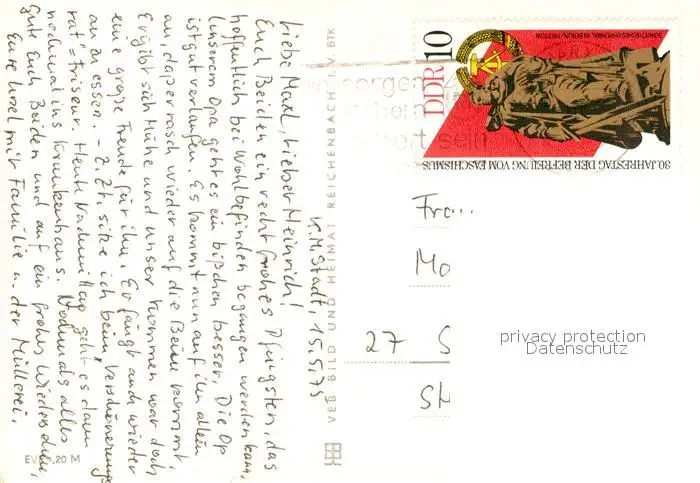 K.M.Stadt, 15.5.75
Liebe Maxl, Lieber Heinrich!
Euch Beiden ein recht frohes Pfingsten, das
hoffentlich bei Wohlbefinden begangen werden kann,
Unserem Opa geht es ein bißchen besser. Die Op
ist gut verlaufen. Es kommt nun auf ihn allein
an, daß er rasch wieder auf die Beine kommt.
Er gibt sich Mühe und unser Kommen war doch
eine große Freude für ihn. Er fängt auch wieder
an zu essen. - Z.Zt. sitze ich beim Verschönerungs
rat = Friseur. Heute Nachmittag geht es dann
nochmal ins Krankenhaus. Nochmals alles
Gute Euch Beiden und auf ein frohes Wiedersehen,
Eure Ursel mit Familie u. der Müllerei,
EVP 0,20 M
VEB BILD UND HEIMAT REICHENBACH I. V. BTK
30. JAHRESTAG DER BEFREIUNG VOM FASCHISMUS
SOWJETISCHES EHRENMAL IN BERLIN-TREPTOW
DDR 10
Fra...
Mo
27 S
SH
privacy protection
Datenschutz